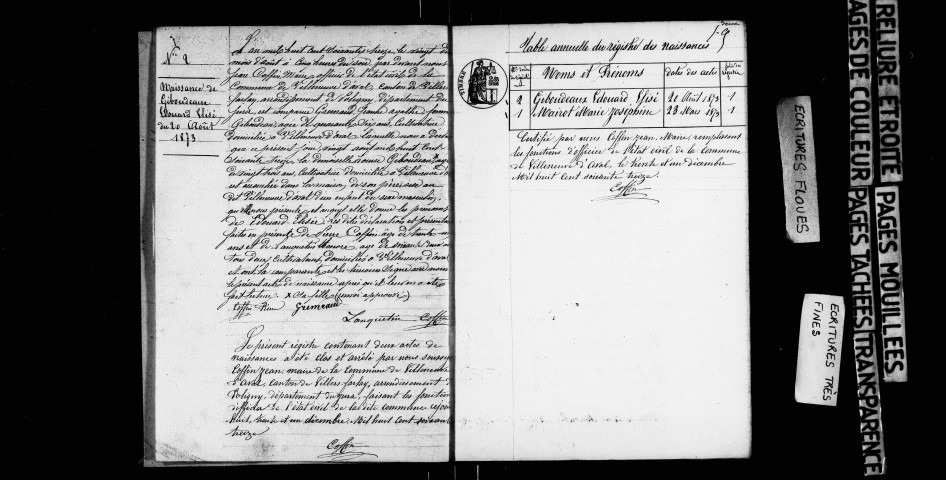 N° 2
Naissance de
Giboudeaux
Edouard Elisé
du 20 Août
1873
L'an mil huit cent soixante treize, le vingt du
mois d'août à cinq heures du soir, par devant nous
Jean Coffin Maire officier de l'état civil de la
Commune de Villeneuve d'aval, Canton de Villers
farlay, arrondissement de Poligny, département du
Jura, est comparu
domicilié à Villeneuve d'aval, laquelle nous a déclaré
que ce présent jour, vingt août mil huit cent
soixante treize, la demoiselle
de vingt trois ans, cultivatrice domiciliée à Villeneuve d'aval
est accouchée dans la maison de son père, sise au
dit Villeneuve d'aval d'un enfant du sexe masculin,
qu'elle nous présente et auquel elle donne les prénoms
de Edouard Elisée. Les dites déclaration et présentation
faites en présence de Pierre Coffin, âgé de trente
ans et de Lanquetin, âgé de soixante
tous deux cultivateurs, domiciliés à Villeneuve d'aval
et ont la comparante et les témoins signé avec nous
le présent acte de naissance après qu'il leur en a été
fait lecture. x sa fille (renvoi approuvé)
Coffin Pierre Grimeaud
Lanquetin Coffin
Le présent registre contenant deux actes de
naissances a été clos et arrêté par nous
Coffin Jean, maire de la Commune de Villeneuve
d'Aval, canton de Villers farlay, arrondissement de
Poligny, département du Jura, faisant les fonctions
d'officier de l'état civil de la dite commune cejourd'
huit, trente et un décembre, Mil huit cent soixante
treize
Coffin
Table annuelle du registre des naissances
Noms et Prénoms dates des actes
2 Giboudeaux Edouard, Elisé 20 Août 1873 1
1 Mairot Marie Joséphine 28 Mars 1873 1
Certifiée par nous Coffin Jean, Maire, remplissant
les fonctions d'officier de l'état civil de la Commune
de Villeneuve d'Aval, le trente et un décembre
Mil huit cent soixante treize.
Coffin
ECRITURES FLOUES
ECRITURES TRÈS
FINES
RELIURE ETROITE
PAGES MOUILLEES
PAGES DE COULEUR
PAGES TACHEES
TRANSPARENCE